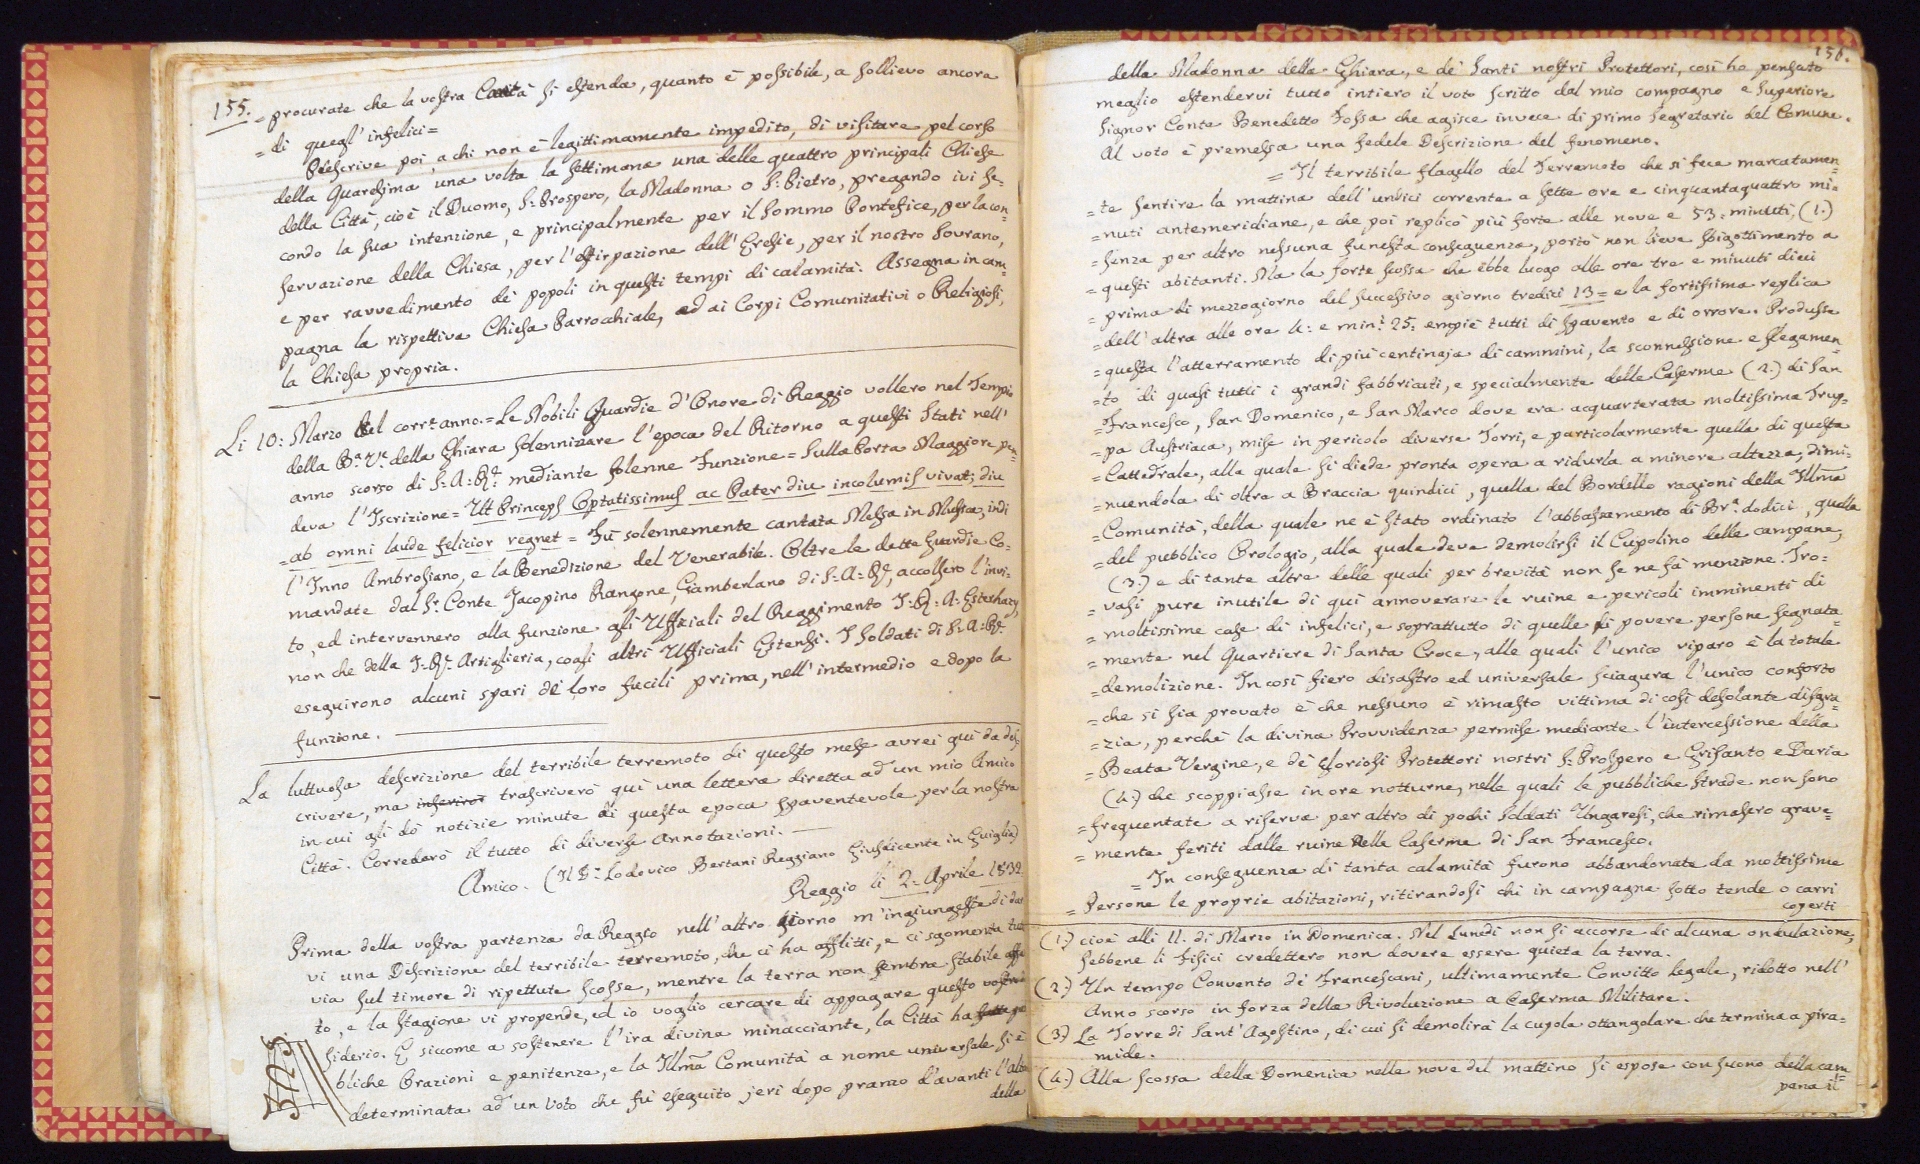 155.
= procurate che la vostra Carità si estenda, quanto è possibile, a sollievo ancora
= di quegl' infelici =
Prescrive poi, a chi non è legittimamente impedito, di visitare pel corso
della Quaresima una volta la settimana una delle quattro principali Chiese
della Città, cioè il Duomo, S. Prospero, la Madonna o S. Pietro, pregando ivi se-
condo la sua intenzione, e principalmente per il Sommo Pontefice, per la con
servazione della Chiesa, per l'estirpazione dell'Eresie, per il nostro Sovrano,
e per ravvedimento de' popoli in questi tempi di calamità. Assegna in cam-
pagna la rispettiva Chiesa Parrochiale, ed ai Corpi Comunitativi o Religiosi,
la Chiesa propria.
Li 10: Marzo del corrte anno = Le Nobili Guardie d'Onore di Reggio vollero nel Tempio
della Ba. Ve. della Ghiara solennizzare l'epoca del Ritorno a questi Stati nell'
anno scorso di S: A: Re. mediante solenne Funzione = Sulla Porta Maggiore pen-
deva l'Iscrizione = Ut Princeps Optatissimus ac Pater diu incolumis vivat; diu
= ab omni laude felicior regnet = Fù solennemente cantata Messa in Musica, indi
l'Inno Ambrosiano, e la Benedizione del Venerabile. Oltre le dette Guardie Co-
mandate dal Sr. Conte Jacopino Rangone, Ciamberlano di S: A: Re., accolsero l'invi-
to, ed intervennero alla funzione gli Ufficiali del Reggimento I: R: A: Esterhazy,
non che della I: Re. Artiglieria, cogli altri Ufficiali Estensi. I Soldati di S: A: Re.
eseguirono alcuni spari de' loro fucili prima, nell' intermedio e dopo la
funzione.
La luttuosa descrizione del terribile terremoto di questo mese avrei quì da des-
crivere, ma inserirò trascriverò quì una lettera diretta ad un mio Amico
in cui gli dò notizie minute di questa epoca spaventevole per la nostra
Città. Correderò il tutto di diverse annotazioni.
Amico. (Il S: Lodovico Bertani Reggiano Giusdicente in Guiglia)
Reggio li 2: Aprile 1832.
Prima della vostra partenza da Reggio nell'altro giorno m'ingiungeste di dar
vi una Descrizione del terribile terremoto, che ci ha afflitti, e ci sgomenta tut
via sul timore di ripettute scosse, mentre la terra non sembra stabile affa
to, e la stagione vi propende, ed io voglio cercare di appagare questo vostro
siderio. E siccome a sostenere l'ira divina minacciante, la Città ha
bliche Orazioni e penitenze, e la Illma Comunità a nome universale si è
determinata ad un voto che fù eseguito jeri dopo pranzo d'avanti l'alta
della
156.
della Madonna della Ghiara, e de' Santi nostri Protettori, così ho pensato
meglio estendervi tutto intiero il voto scritto dal mio compagno e Superiore
Signor Conte Benedetto Fossa che agisce invece di primo Segretario del Comune.
Al voto è premessa una fedele Descrizione del fenomeno.
= Il terribile flagello del Terremoto che si fece marcatamen=
= te sentire la mattina dell' undici corrente a sette ore e cinquantaquattro mi=
= nuti antemeridiane, e che poi replicò più forte alle nove e 53: minuti, (1.)
= senza per altro nessuna funesta conseguenza, portò non lieve sbigottimento a
= questi abitanti. Ma la forte scossa che ebbe luogo alle ore tre e minuti dieci
= prima di mezzogiorno del successivo giorno tredici 13 = e la fortissima replica
= dell' altra alle ore 4: e min.i 25: empiè tutti di spavento e di orrore. Produsse
= questa l'atterramento di più centinaja di cammini, la sconnessione e slegamen=
= to di quasi tutti i grandi fabbricati, e specialmente delle Caserme (2.) di San
= Francesco, San Domenico, e San Marco dove era acquarterata moltissima Trup=
= pa Austriaca, mise in pericolo diverse Torri, e particolarmente quella di questa
= Cattedrale, alla quale si diede pronta opera a ridurla a minore altezza, dimi=
= nuendola di oltre a Braccia quindici, quella del Bordello ragioni della Illma
= Comunità, della quale ne è stato ordinato l'abbassamento di Bra. dodici, quella
= del pubblico Orologio, alla quale deve demolirsi il Cupolino delle campane,
(3.) e di tante altre delle quali per brevità non se ne fà menzione. Tro=
= vasi pure inutile di quì annoverare le ruine e pericoli imminenti di
= moltissime case di infelici, e soprattutto di quelle di povere persone segnata=
= mente nel Quartiere di Santa Croce, alle quali l'unico riparo è la totale
= demolizione. In così fiero disastro ed universale sciagura l'unico conforto
= che si sia provato è che nessuno è rimasto vittima di così desolante disgra=
= zia, perchè la divina Provvidenza permise mediante l'intercessione della
= Beata Vergine, e de' gloriosi Protettori nostri S: Prospero e Grisanto e Daria
(4.) che scoppiasse in ore notturne, nelle quali le pubbliche strade non sono
= frequentate a riserva per altro di pochi Soldati Ungaresi, che rimasero grave=
= mente feriti dalle ruine della Caserma di San Francesco.
= In conseguenza di tanta calamità furono abbandonate da moltissime
= Persone le proprie abitazioni, ritirandosi chi in campagna sotto tende o carri
coperti
(1.) cioè alli 11. di Marzo in Domenica. Nel Lunedì non si accorse di alcuna ondulazione,
sebbene li Fisici credettero non dovere essere quieta la terra.
(2.) Un tempo Convento de' Francescani, ultimamente Convitto legale, ridotto nell'
Anno scorso in forza della Rivoluzione a Caserma Militare.
(3.) La Torre di Sant' Agostino, di cui si demolirà la cupola ottangolare che termina a pira-
mide.
(4.) Alla scossa della Domenica nelle nove del mattino si espose con suono della cam
pana il